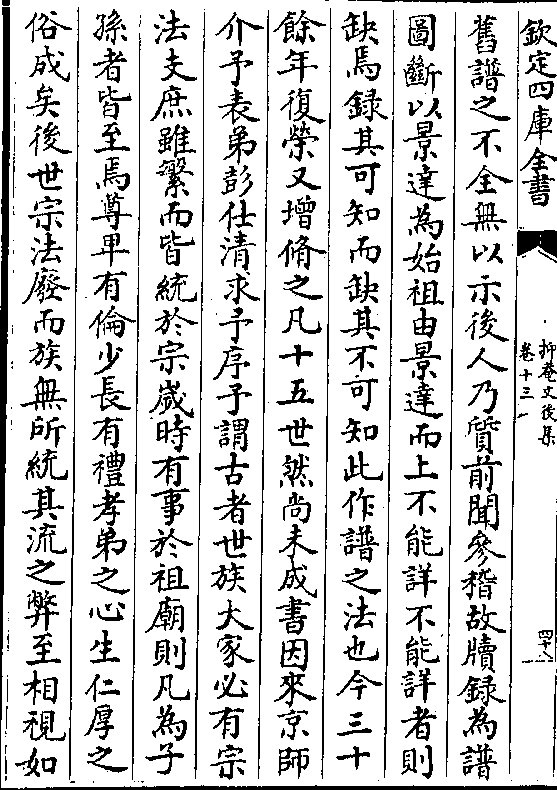 欽定四庫全書
抑菴文後集
卷十三
四十八
舊譜之不全無以示後人乃質前聞參稽故牘録為譜
圖斷以景達為始祖由景達而上不能詳不能詳者則
缺焉録其可知而缺其不可知此作譜之法也今三十
餘年復榮又增脩之凡十五世然尚未成書因來京師
介予表弟彭仕清求予序予謂古者世族大家必有宗
法支庶雖繁而皆統於宗歲時有事於祖廟則凡為子
孫者皆至焉尊卑有倫少長有禮孝弟之心生仁厚之
俗成矣後世宗法廢而族無所統其流之弊至相視如